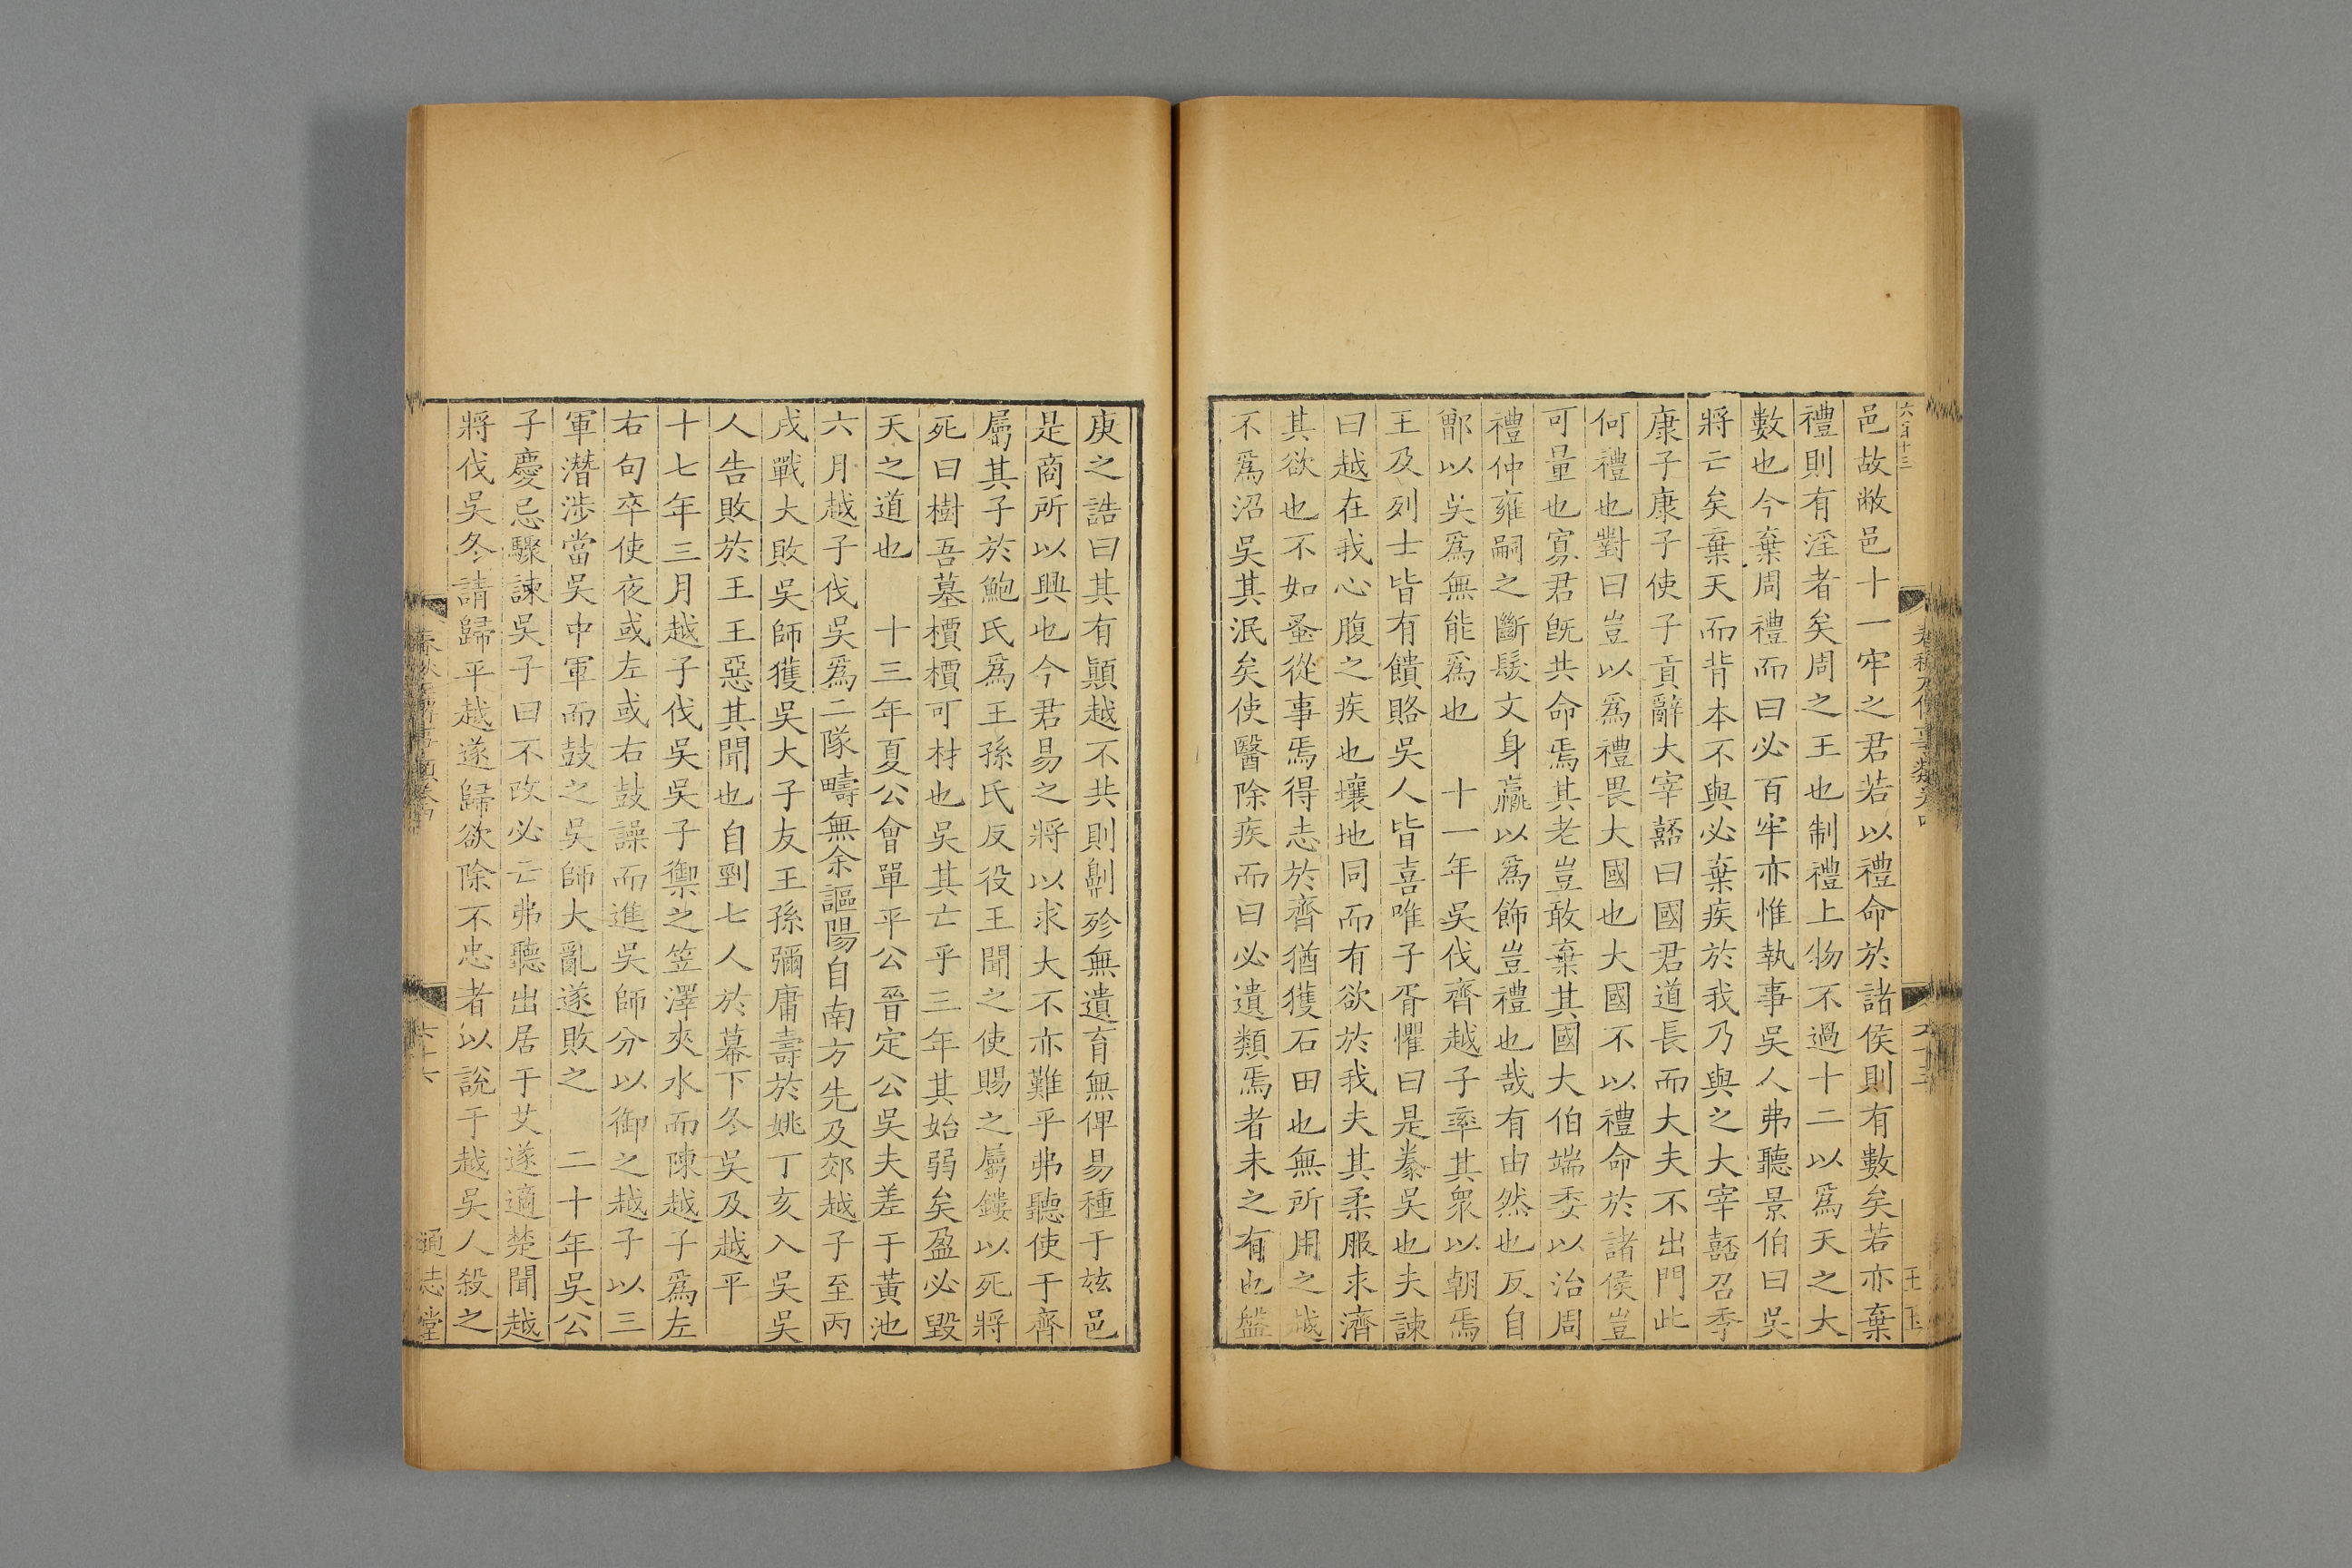 六百十三
邑故敝邑十一牢之君若以禮命於諸侯則有數矣若亦棄
禮則有淫者矣周之王也制禮上物不過十二以爲天之大
數也今棄周禮而曰必百牢亦惟執事吳人弗聽景伯曰吳
將亡矣棄天而背本不與必棄疾於我乃與之大宰嚭召季
康子康子使子貢辭大宰嚭曰國君道長而大夫不出門此
何禮也對曰豈以爲禮畏大國也大國不以禮命於諸侯豈
可量也寡君旣共命焉其老豈敢棄其國大伯端委以治周
禮仲雍嗣之斷髮文身臝以爲飾豈禮也哉有由然也反自
鄫以吳爲無能爲也　十一年吳伐齊越子率其衆以朝焉
王及列士皆有饋賂吳人皆喜唯子胥懼曰是豢吳也夫諫
曰越在我心腹之疾也壤地同而有欲於我夫其柔服求濟
其欲也不如蚤從事焉得志於齊猶獲石田也無所用之越
不爲沼吳其泯矣使醫除疾而曰必遺類焉者未之有也盤
庚之誥曰其有顚越不共則劓殄無遺育無俾易種于玆邑
是商所以興也今君易之將以求大不亦難乎弗聽使于齊
屬其子於鮑氏爲王孫氏反役王聞之使賜之屬鏤以死將
死曰樹吾墓檟檟可材也吳其亡乎三年其始弱矣盈必毀
天之道也　十三年夏公會單平公晉定公吳夫差于黃池
六月越子伐吳爲二隊疇無余謳陽自南方先及郊越子至丙
戌戰大敗吳師獲吳大子友王孫彌庸壽於姚丁亥入吳吳
人告敗於王王惡其聞也自剄七人於幕下冬吳及越平
十七年三月越子伐吳吳子禦之笠澤夾水而陳越子爲左
右句卒使夜或左或右鼓譟而進吳師分以御之越子以三
軍潛涉當吳中軍而鼓之吳師大亂遂敗之　二十年吳公
子慶忌驟諫吳子曰不改必亡弗聽出居于艾遂適楚聞越
將伐吳冬請歸平越遂歸欲除不忠者以說于越吳人殺之
通志堂